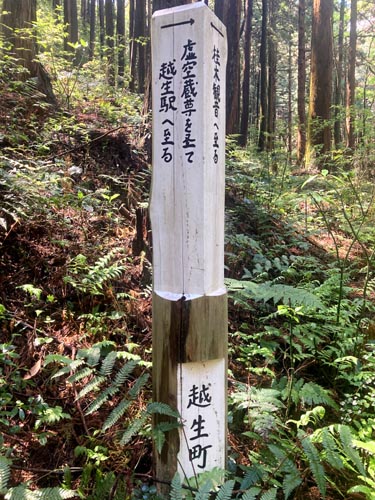 桂木観音へ至る
虚空蔵尊を至て
越生駅へ至る
越生町